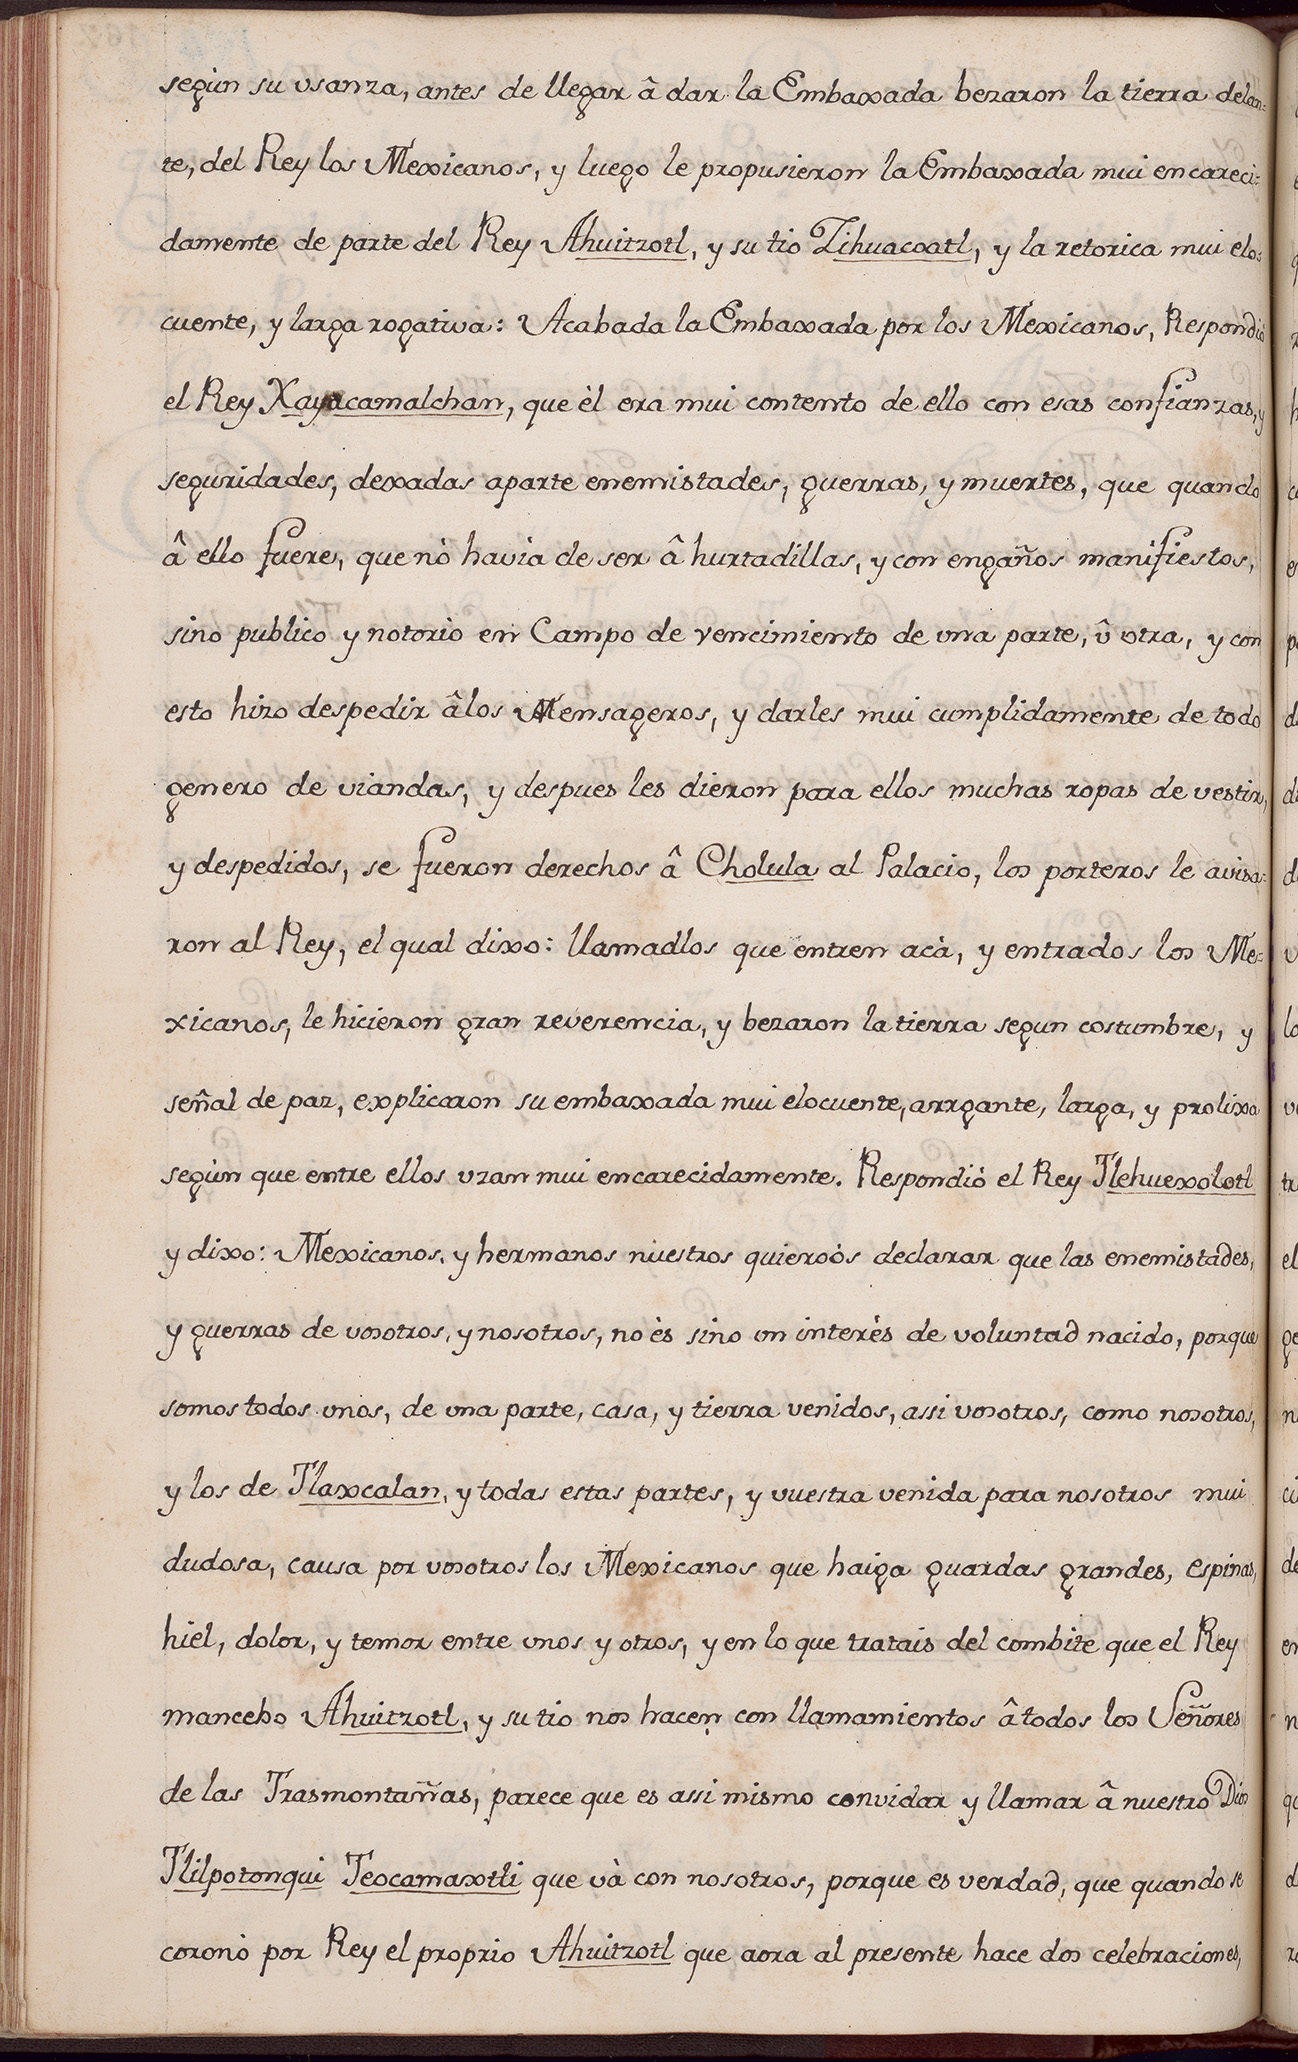 segùn su vsanza, antes de llegar â dar la Embaxada bezaron la tierra delan=
te, del Rey los Mexicanos, y luego le propusieron la Embaxada mui encareci=
damente de parte del Rey Ahuitzotl, y su tio Zihuacoatl, y la retorica mui elo=
cuente, y larga rogativa: Acabada la Embaxada por los Mexicanos, Respondiò
el Rey Xayacamalchan, que èl era mui contento de ello con esas confianzas, y
seguridades, dexadas aparte enemistades, guerras, y muertes, que quando
â ello fuere, que nò havia de ser â hurtadillas, y con engaños manifiestos,
sino publico y notorio en Campo de vencimiento de vna parte, û otra, y con
esto hizo despedir âlos Mensageros, y darles mui cumplidamente de todo
genero de viandas, y despues les dieron para ellos muchas ropas de vestir,
y despedidos, se fueron derechos â Cholula al Palacio, los porteros le avisa=
ron al Rey, el qual dixo: llamadlos que entren acà, y entrados los Me=
xicanos, le hicieron gran reverencia, y bezaron la tierra segun costumbre, y
señal de paz, explicaron su embaxada mui elocuente, arrgante, larga, y prolixa
segùn que entre ellos vzan mui encarecidamente. Respondiò el Rey Tlehuexolotl
y dixo: Mexicanos, y hermanos nuestros quieroòs declarar que las enemistades,
y guerras de vosotros, y nosotros, no ès sino vn interès de voluntad nacido, porque
somos todos vnos, de vna parte, casa, y tierra venidos, assi vosotros, como nosotros,
y los de Tlaxcalan, y todas estas partes, y vuestra venida para nosotros mui
dudosa, causa por vosotros los Mexicanos que haiga guardas grandes, espinas,
hiel, dolor, y temor entre vnos y otros, y en lo que tratais del combite que el Rey
mancebo Ahuitzotl, y su tio nos hacen con llamamientos â todos los Señores
de las Trasmontañas, parece que es assi mismo convidar y llamar â nuestro Dios
Tlilpotonqui Teocamaxtli que và con nosotros, porque es verdad, que quando se
coronò por Rey el proprio Ahuitzotl que aora al presente hace dos celebraciones,